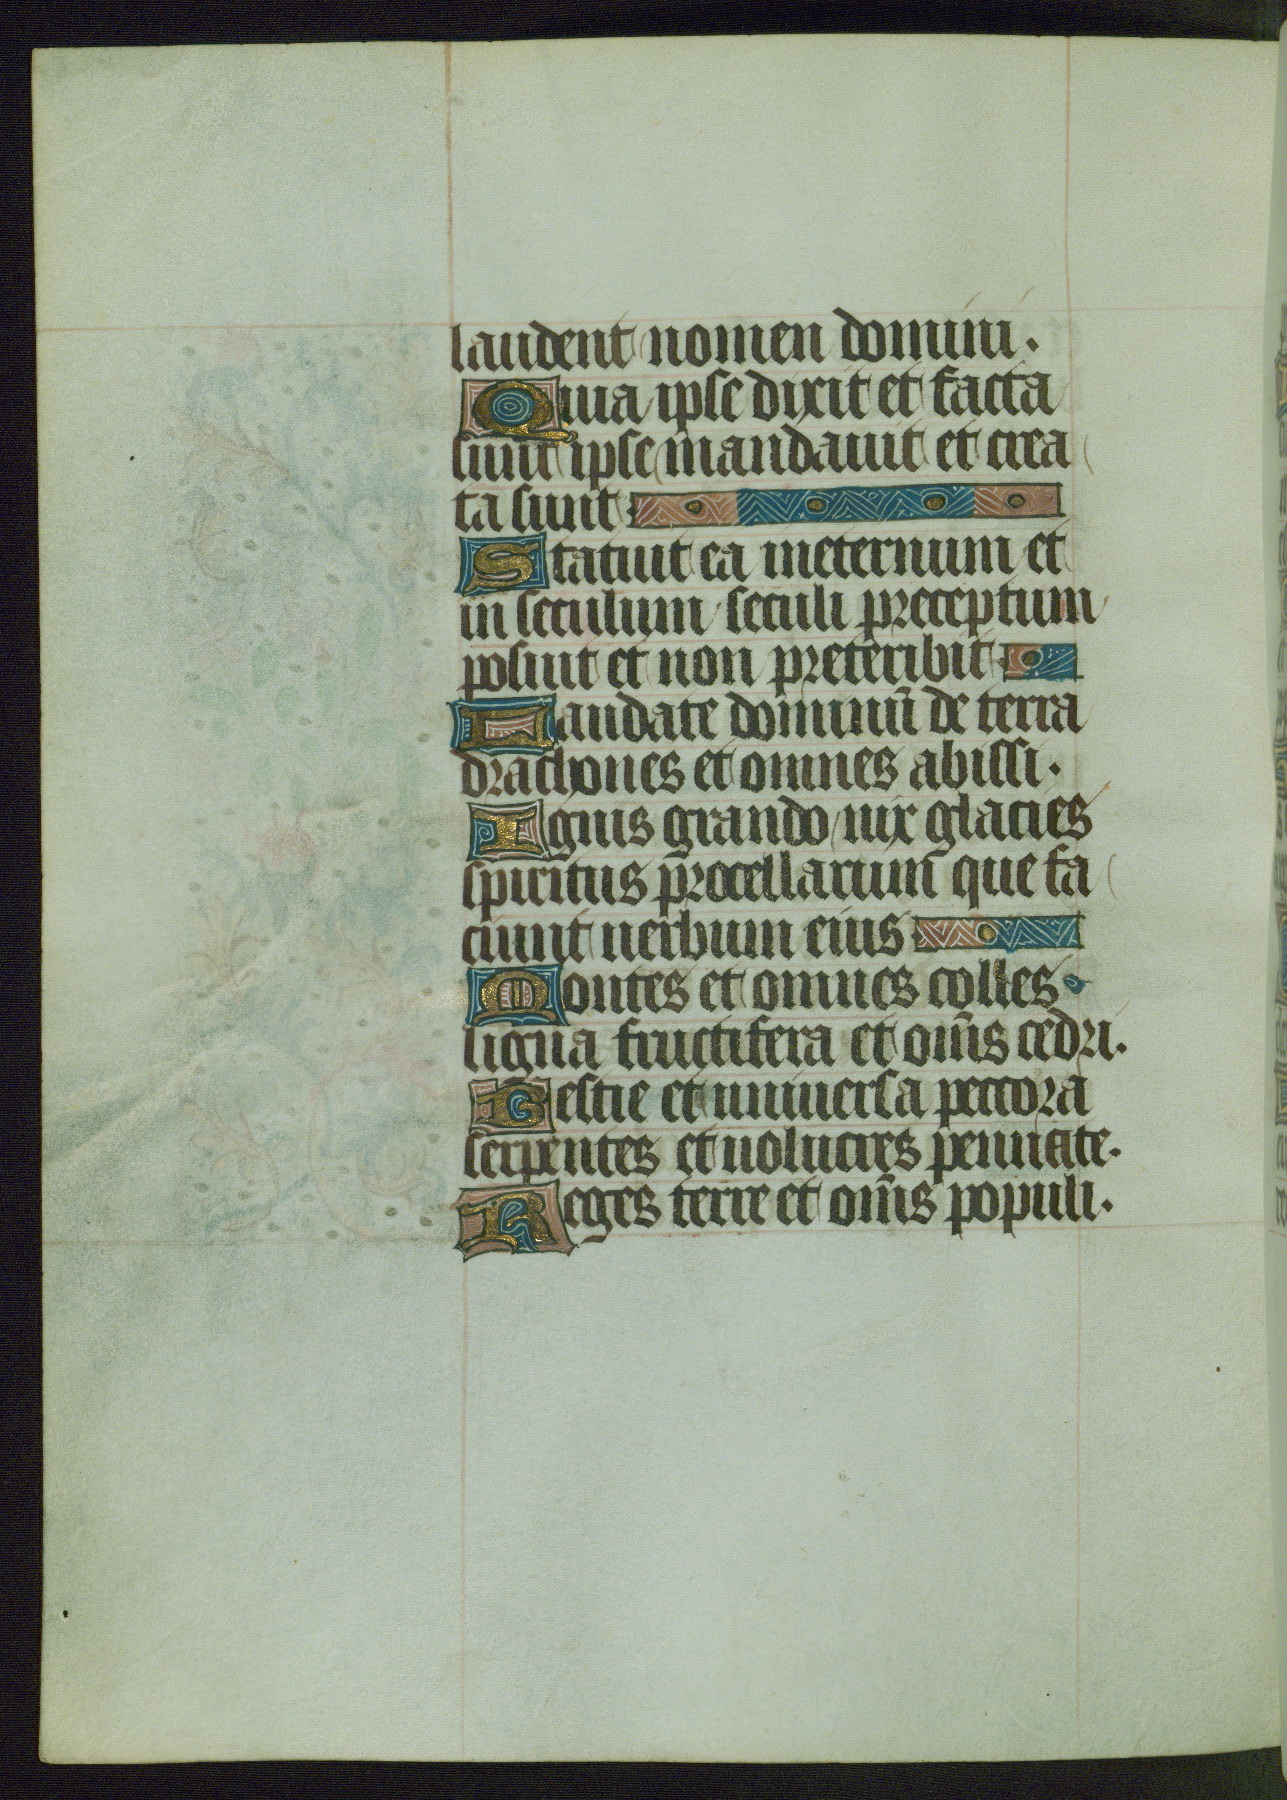 laudent nomen domini.
Quia ipse dixit et facta
sunt ipse mandauit et crea
ta sunt
Statuit ea ineternum et
in seculum seculi preceptum
posuit et non preteribit
Laudate dominū de terra
drachones et omnes abissi.
Ignis grando nix glacies
spiritus procellarum que fa
ciunt uerbum eius
Montes et omnes colles
ligna fructifera et om̄s cedri.
Bestie et uniuersa peccora
serpentes et uolucres pennate.
Reges terre et om̄s populi.